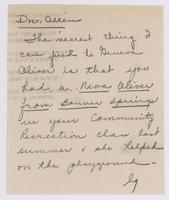 Dow. Allein
The nearest thing I
can find to Geneva
Oliver is that you
had a Neva Oliver
from Bonner Springs
in your Community
Recreation class last
summer & she helped
on the playground -